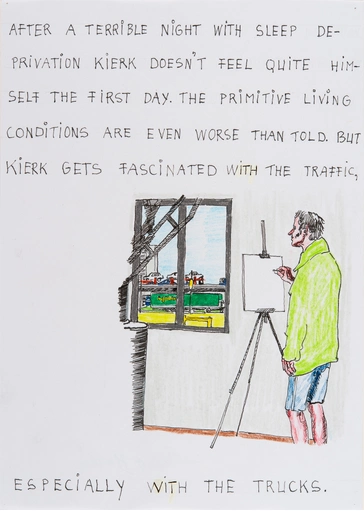 AFTER A TERRIBLE NIGHT WITH SLEEP DE-
PRIVATION KIERK DOESN'T FEEL QUITE HIM-
SELF THE FIRST DAY. THE PRIMITIVE LIVING
CONDITIONS ARE EVEN WORSE THAN TOLD. BUT
KIERK GETS FASCINATED WITH THE TRAFFIC,
ESPECIALLY WITH THE TRUCKS.